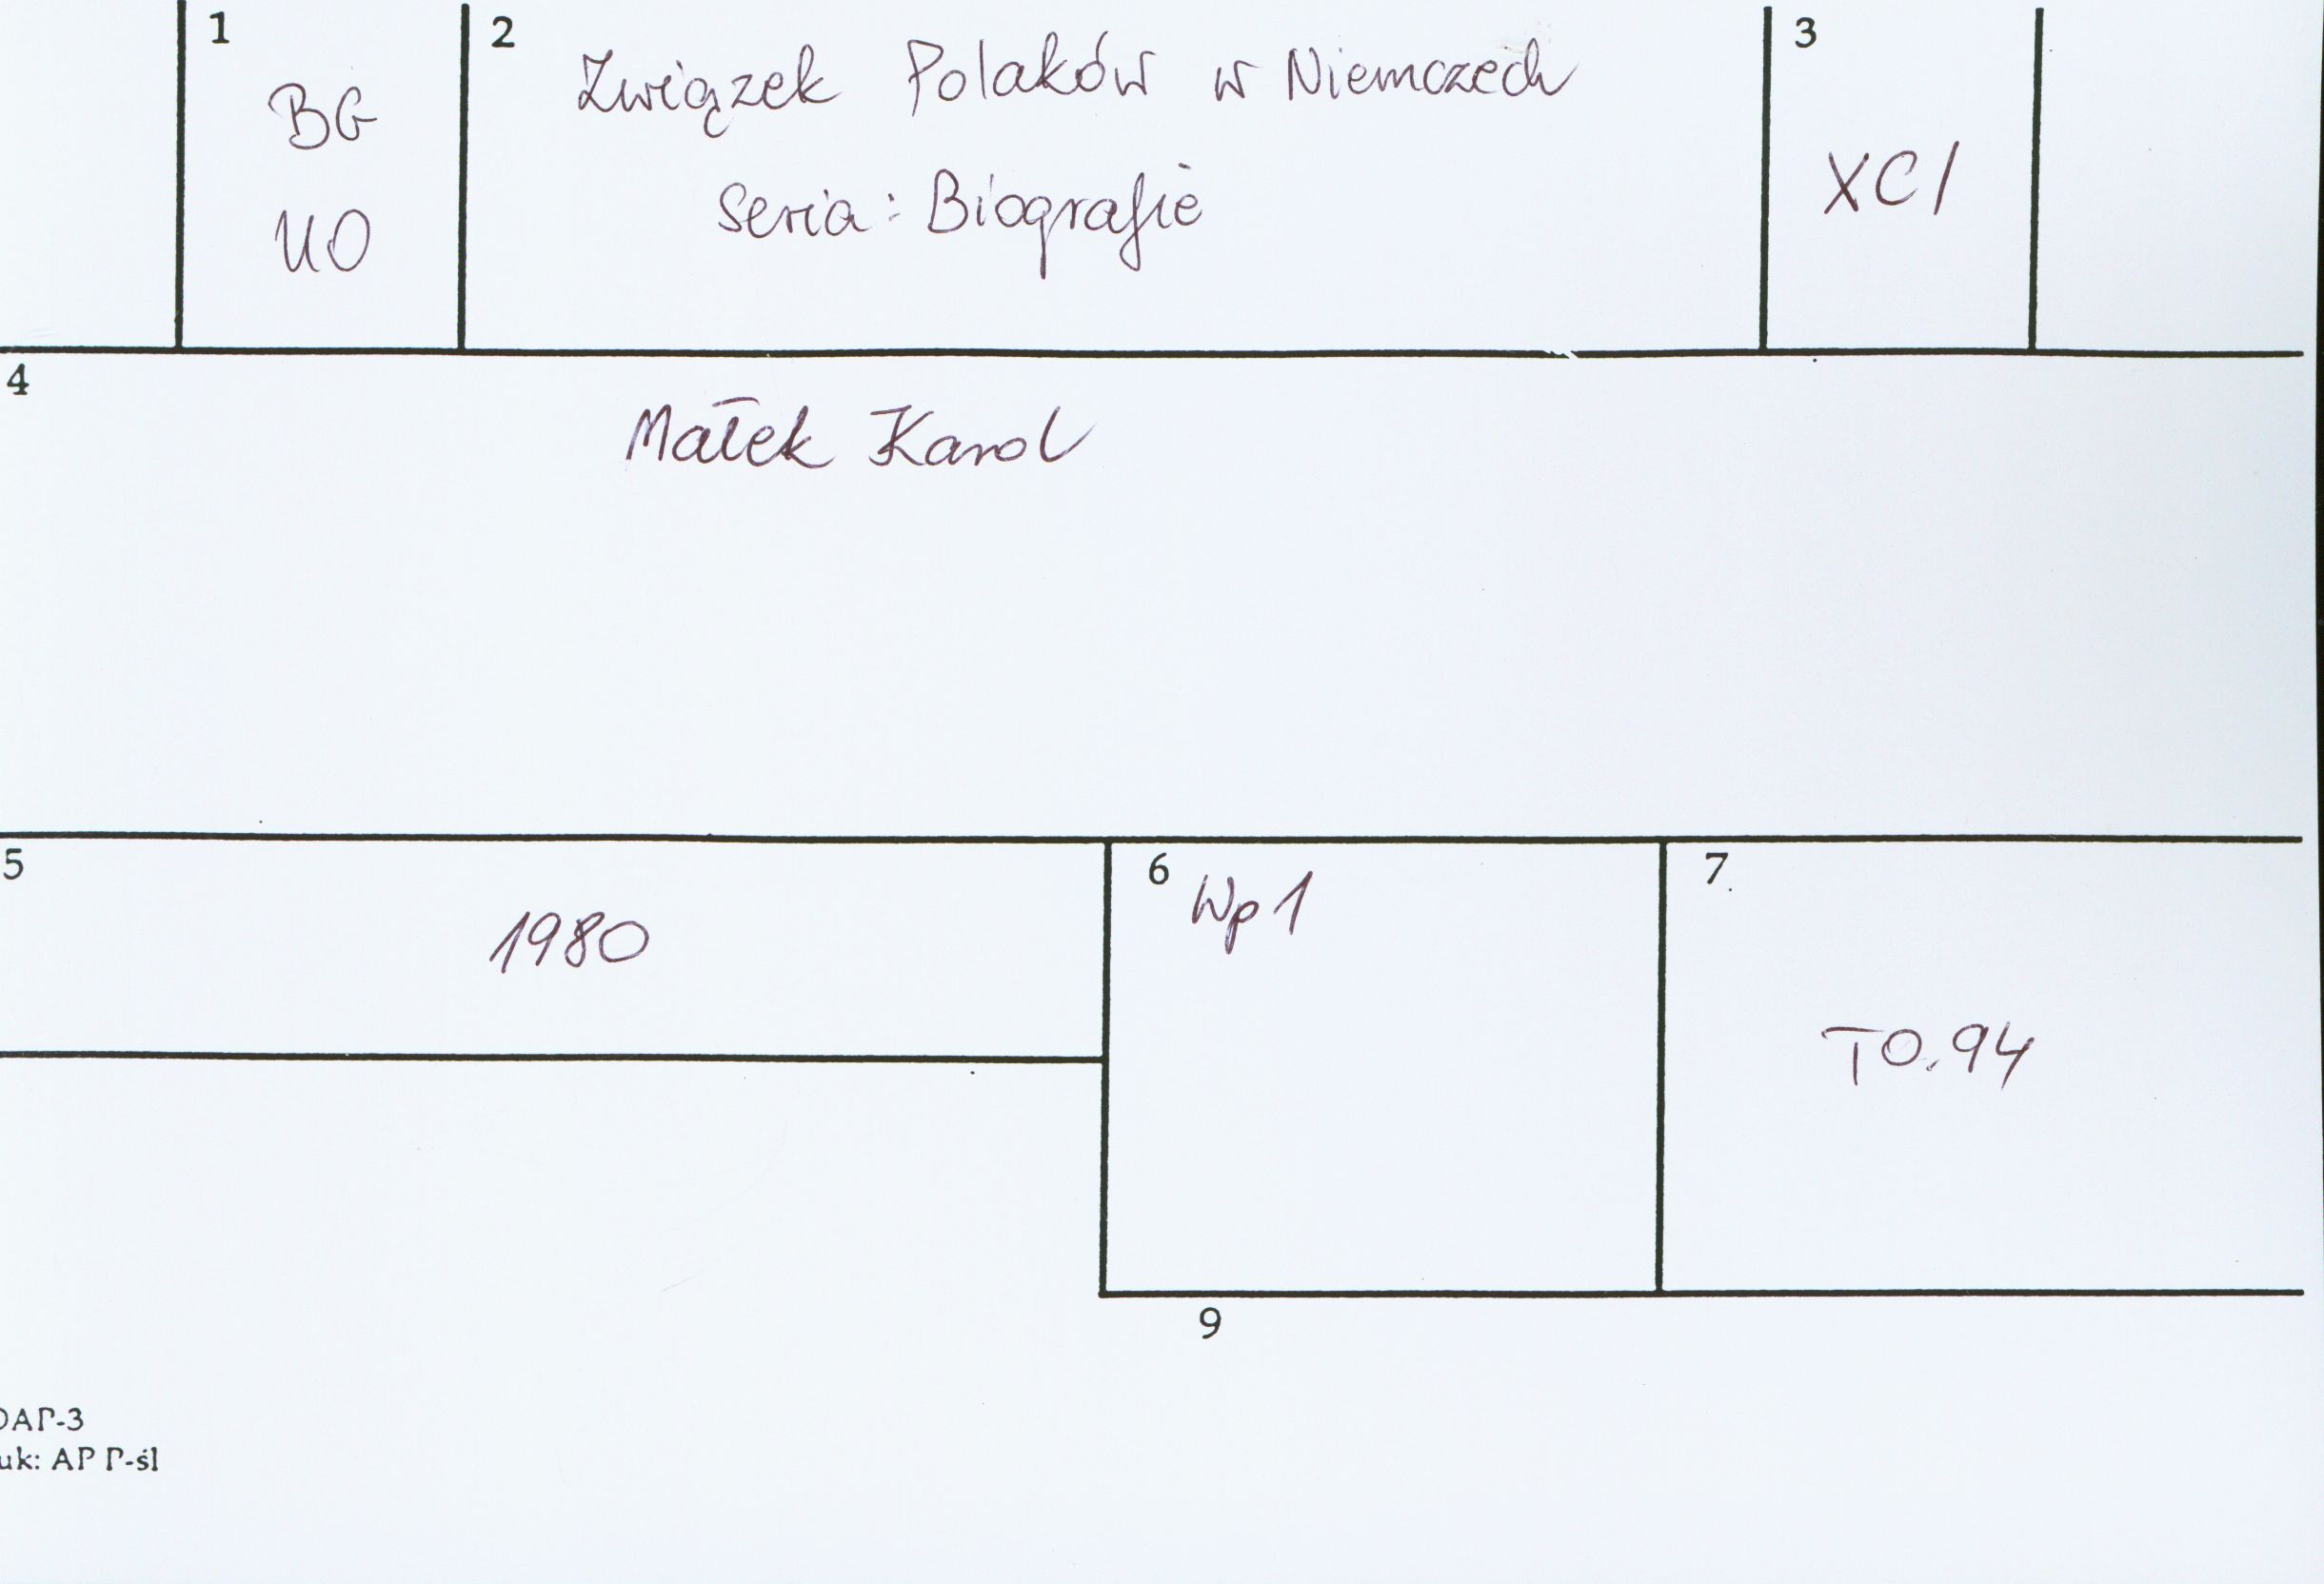 1
BG
UO
2
Związek Polaków w Niemczech
Seria: Biografie
3
XCI
4
Małek Karol
5
1980
6
Wp1
7
TO.94
9
OAP-3
uk: AP P-śl